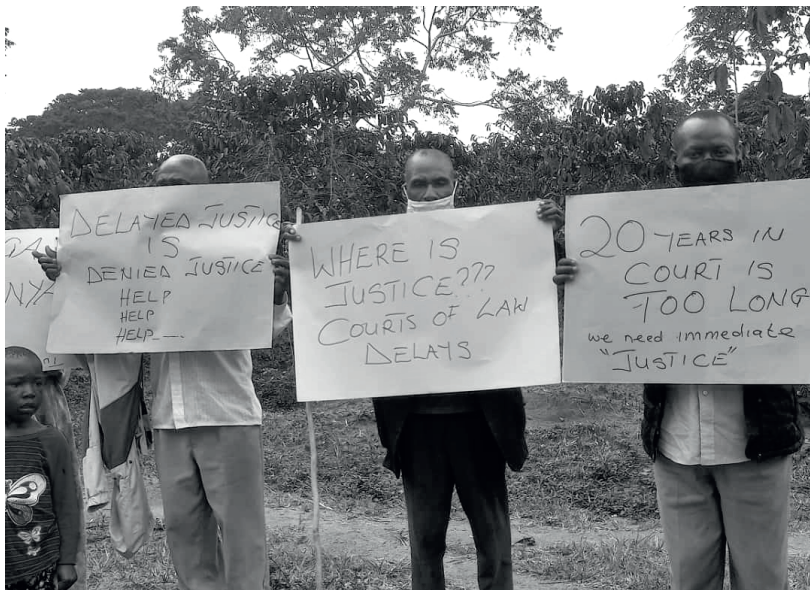 DELAYED JUSTICE
IS
DENIED JUSTICE
HELP
HELP
HELP_ _ _.
WHERE IS
JUSTICE???
COURTS OF LAW
DELAYS
20 YEARS IN
COURT IS
TOO LONG
we need immediate
"JUSTICE"